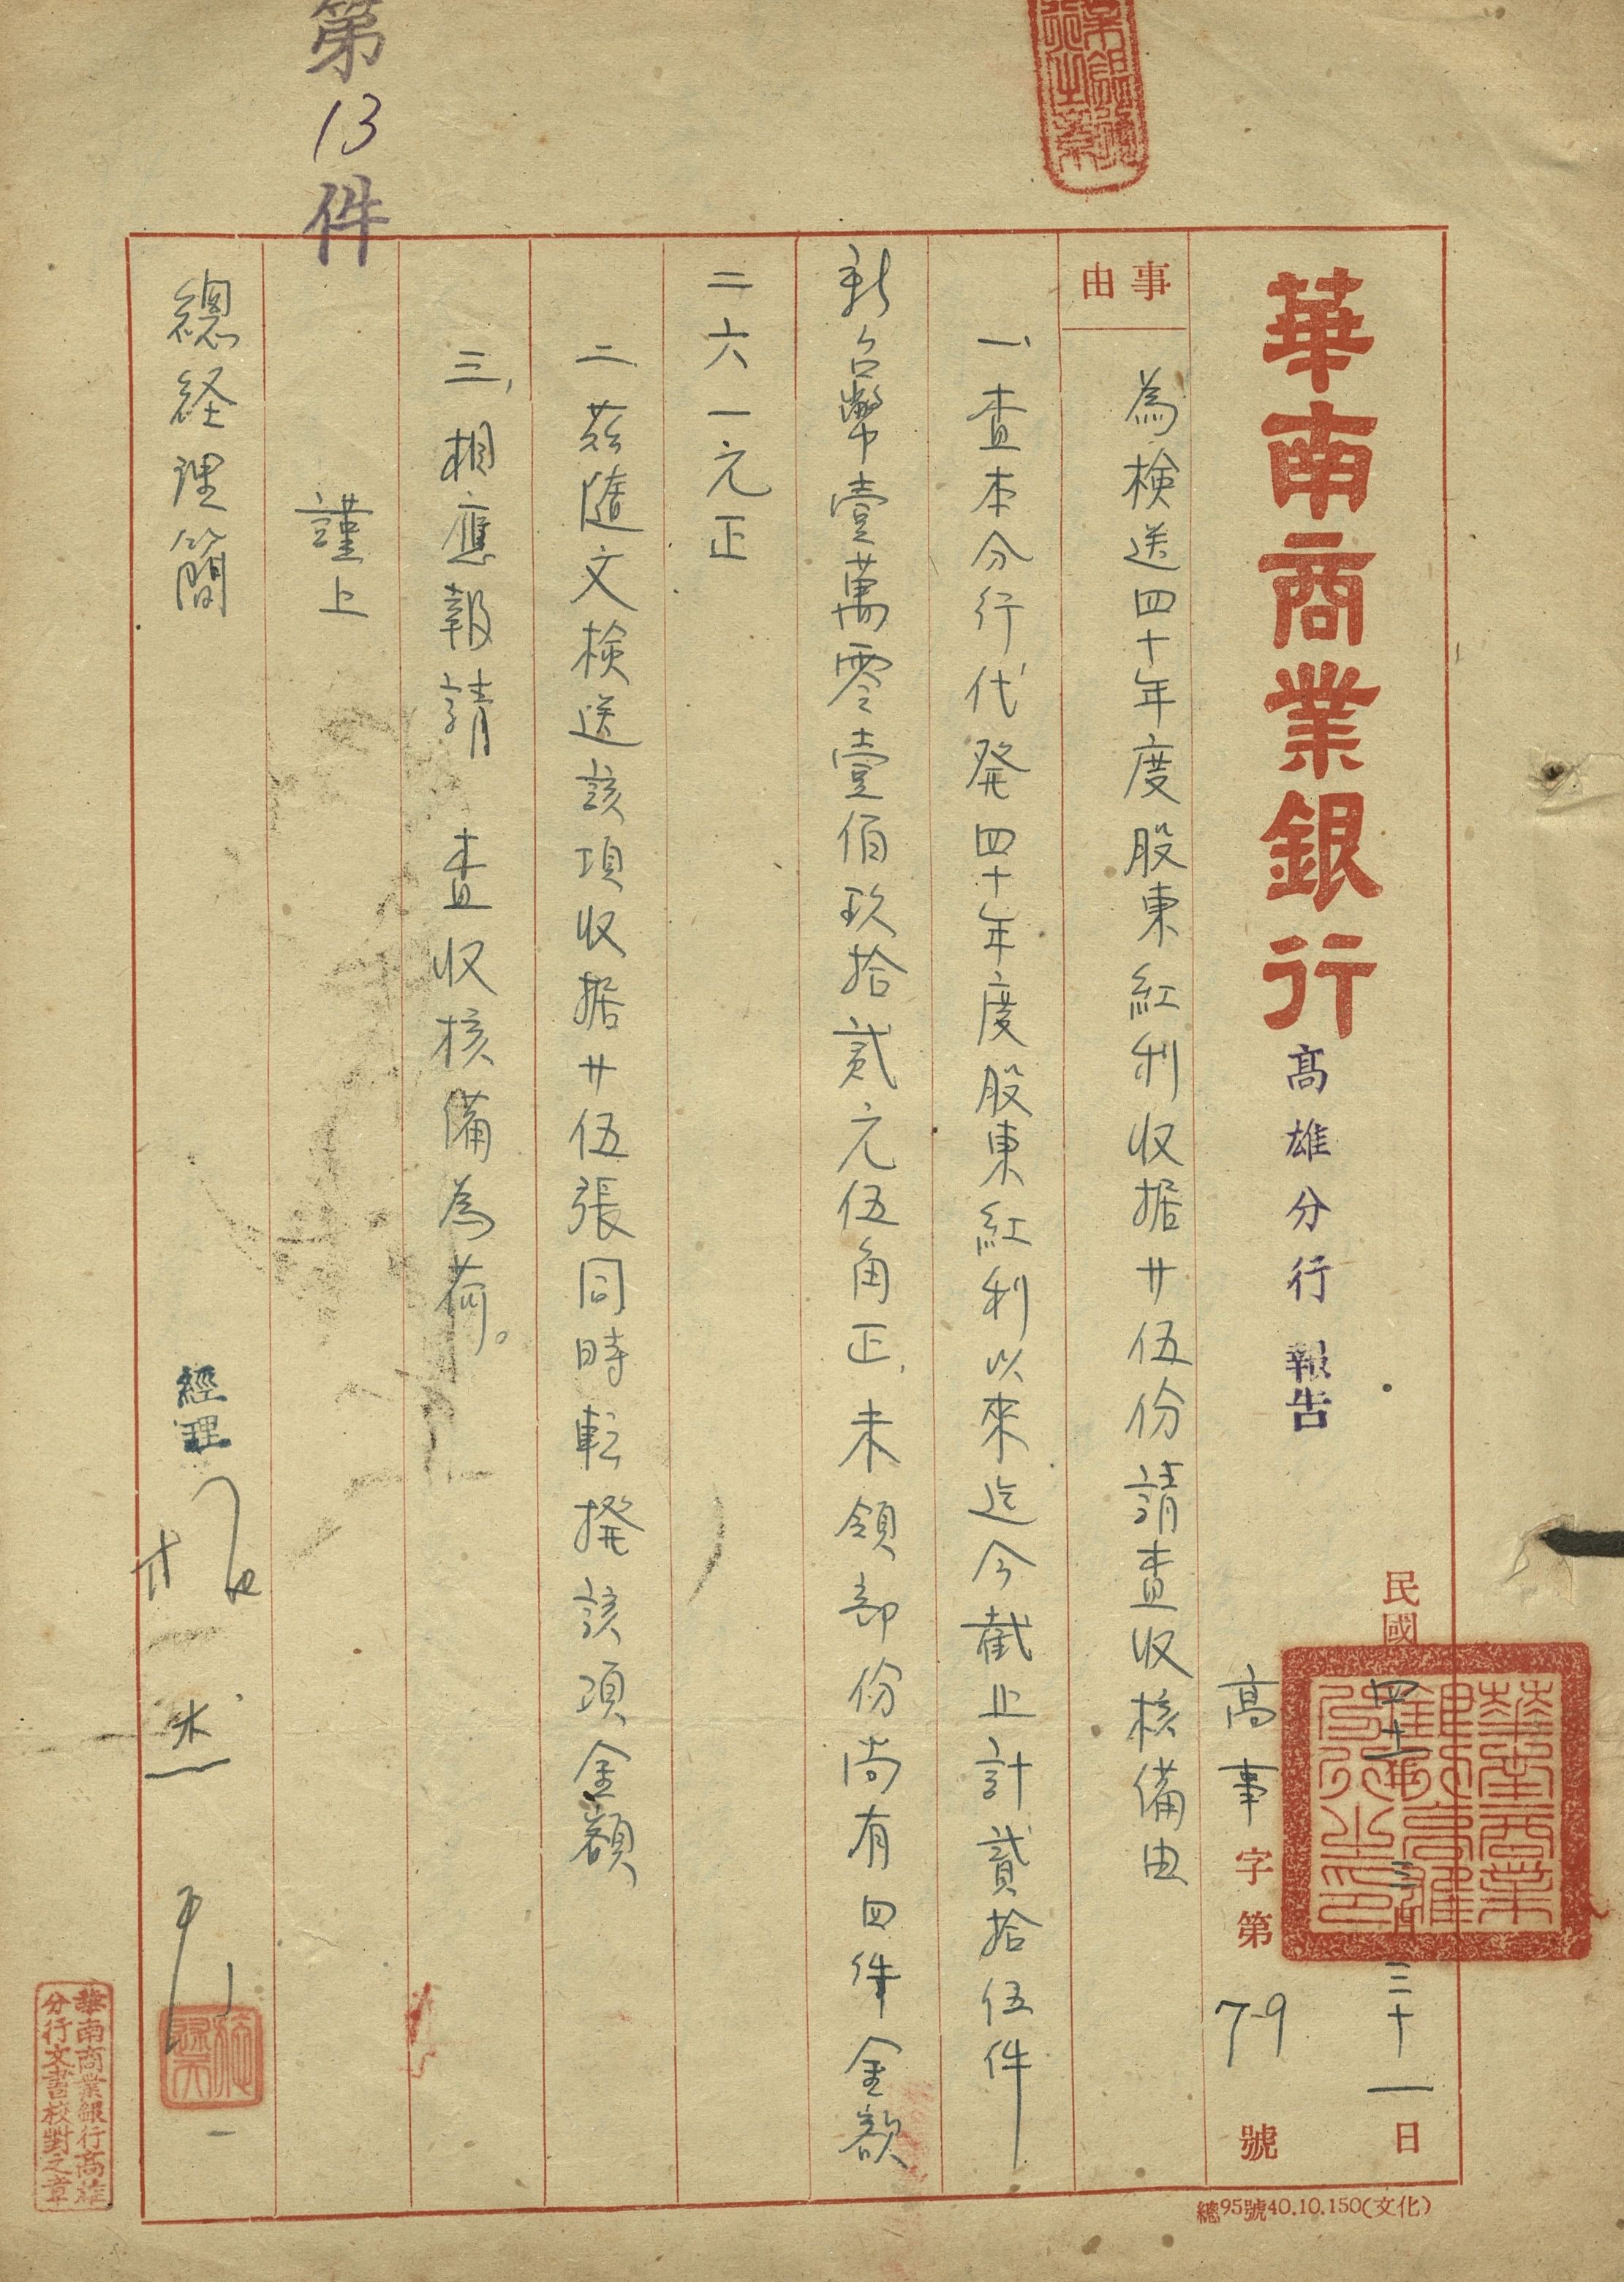 第13件
華南商業銀行高雄分行 報告
民國四十一年三月三十一日
高事字第79號
事由
為検送四十年度股東紅利收据廿伍份請查收核備由
一、查本分行代発四十年度股東紅利以來迄今截止計貳拾伍件
新台幣壹萬零壹佰玖拾貳元伍角正、未領部份尚有四件金額
二六一元正
二、茲隨文検送該項收据廿伍張同時転撥該項金額
三、相應報請 查收核備為荷。
謹上
總経理簡
經理
華南商業銀行高雄
分行文書校對之章
總95號40.10.150(文化)